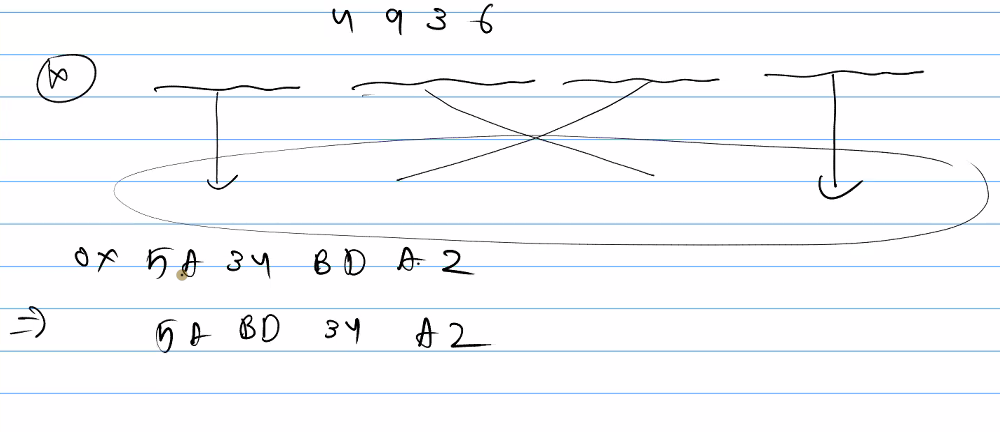 4 9 3 6
x
0x 5A 34 BD A2
⇒ 5A BD 34 A2